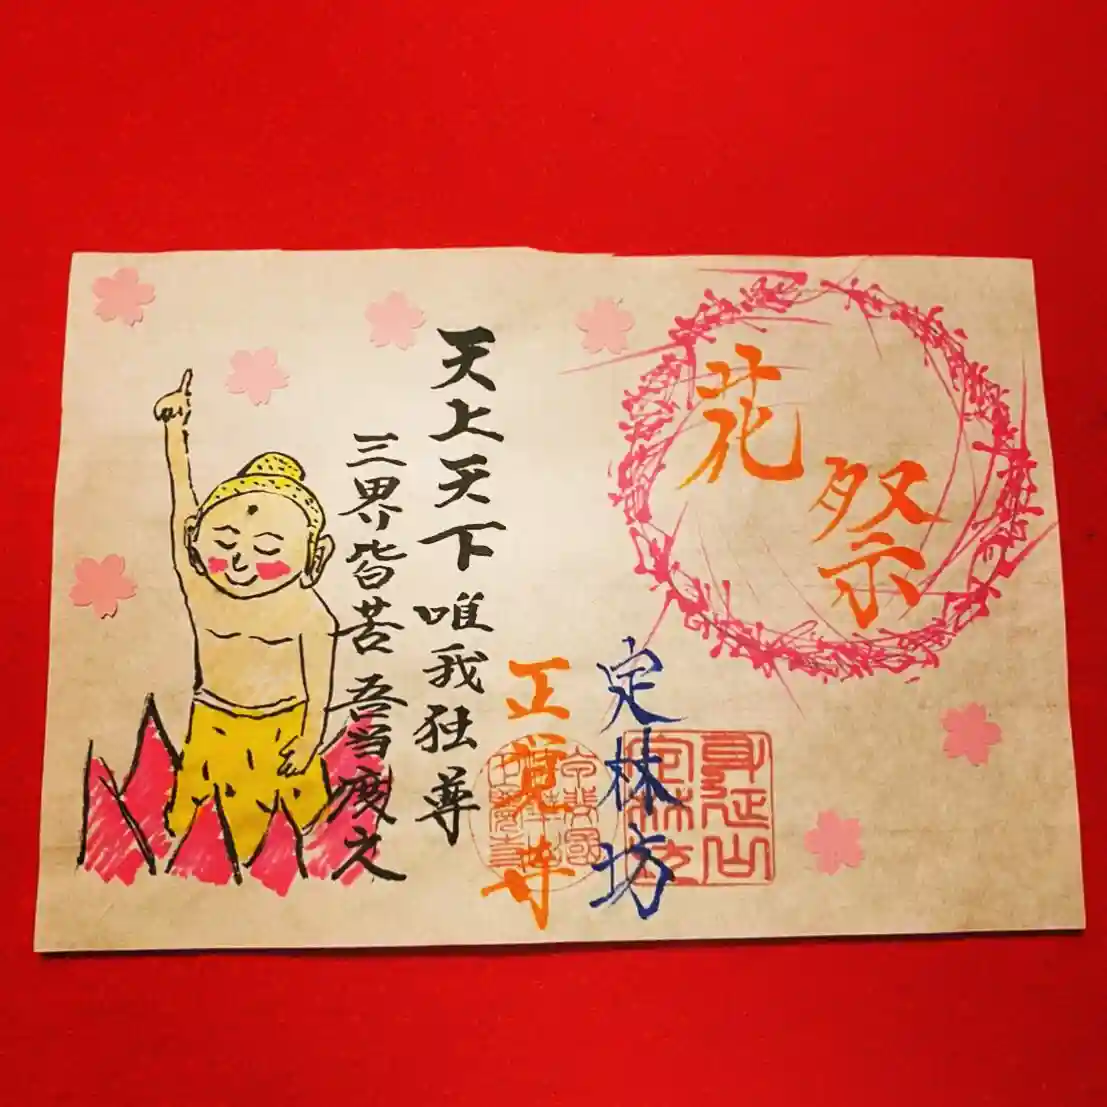 花祭
天上天下唯我独尊
三界皆苦吾当度之
定林坊
正覚寺
身延山
定林坊